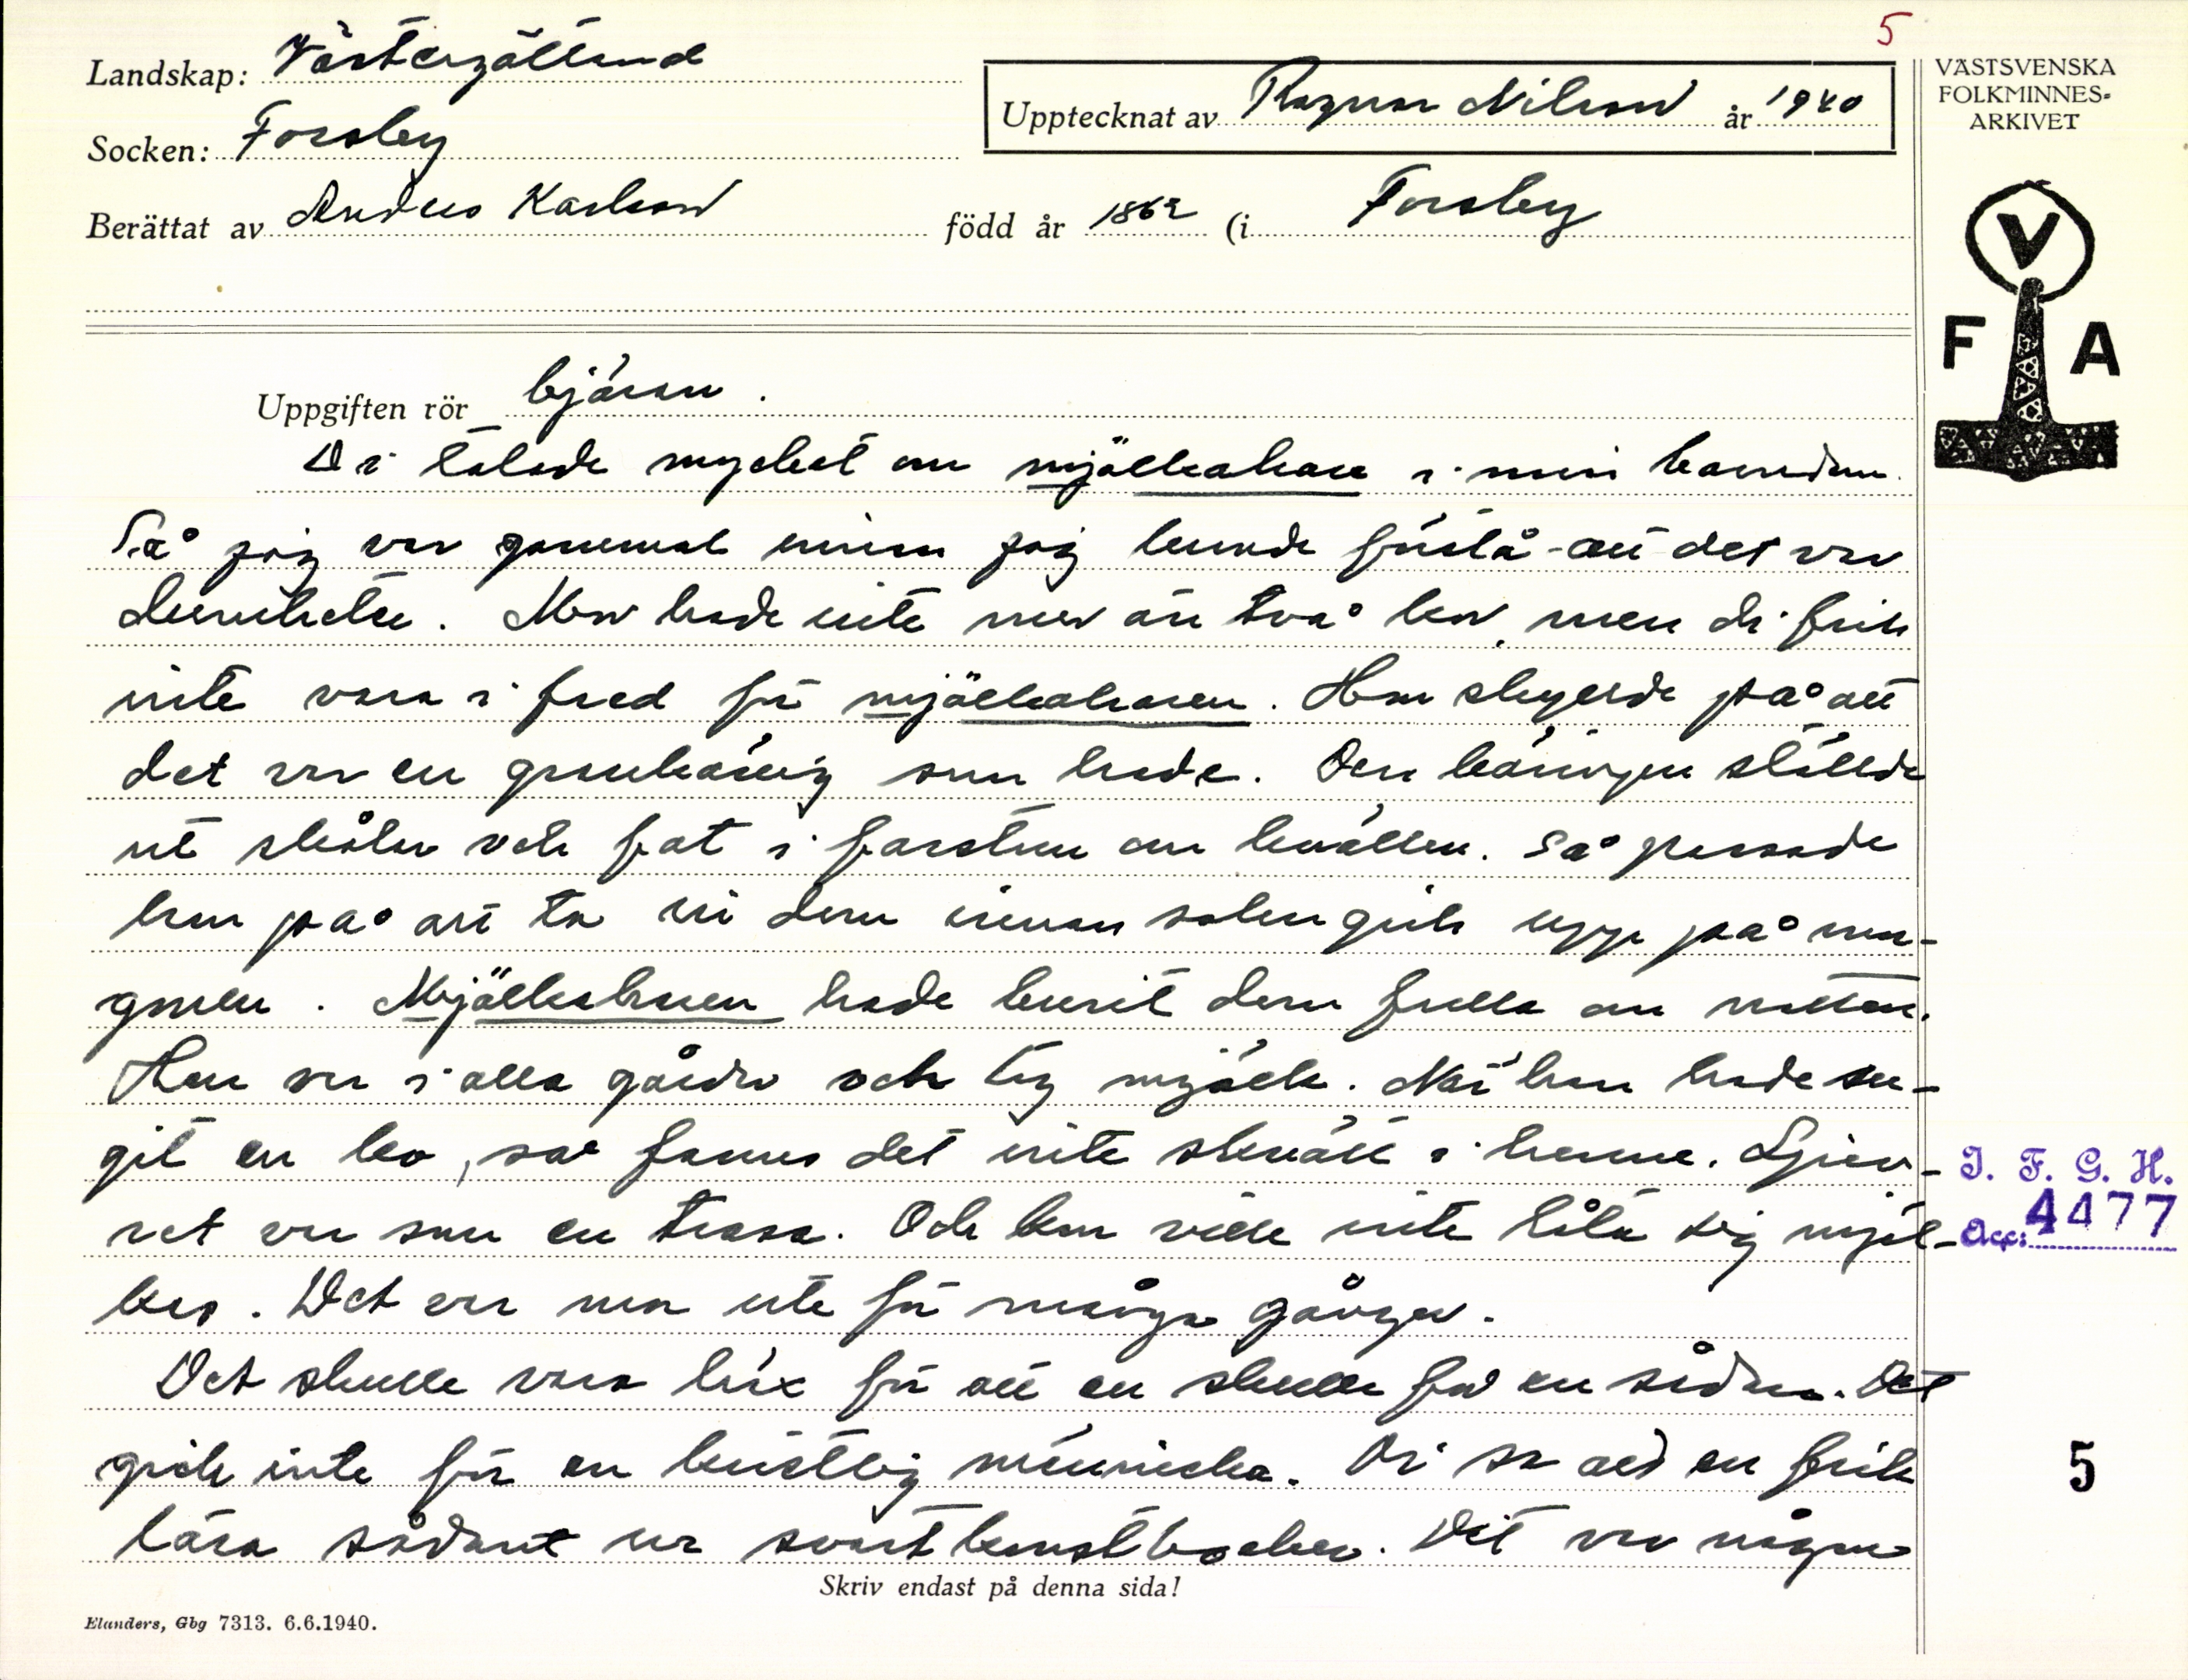 5
Landskap: Västergötland
Socken: Forsby
Upptecknat av Ragnar Nilsson år 1940
Berättat av Anders Karlsson född år 1862 (i Forsby
VÄSTSVENSKA
FOLKMINNES-
ARKIVET
V
F A
Uppgiften rör bjäran.
Di talade mycket om mjölkahare i min barndom.
Så jag var gammal innan jag kunde förstå att det var
dumheter. Men hade inte mer än två kor, men di fick
inte vara i fred för mjölkaharen. Hon skyllde på att
det var en grannkäring som hade. Den käringen ställde
ut skålar och fat i farstun om kvällen. Så passade
hon på att ta in dem innan solen gick upp på mor-
gonen. Mjölkaharen hade burit dem fulla om natten.
Han var i alla gårdar och tog mjölk. När han hade su-
git en ko, så fanns det inte skvätt i henne. Sjuv-
ret var som en trasa. Och kon ville inte låta sig mjöl-
kas. Det var nu inte för många gånger.
Det skulle vara krix för att en skulle få en sådan. Det
gick inte för en kristlig människa. Di sa att en fick
lära sådant ur svartkonstböcker. Det var några
Skriv endast på denna sida!
Elanders, Gbg 7313. 6.6.1940.
I. F. G. H.
Acc: 4477
5